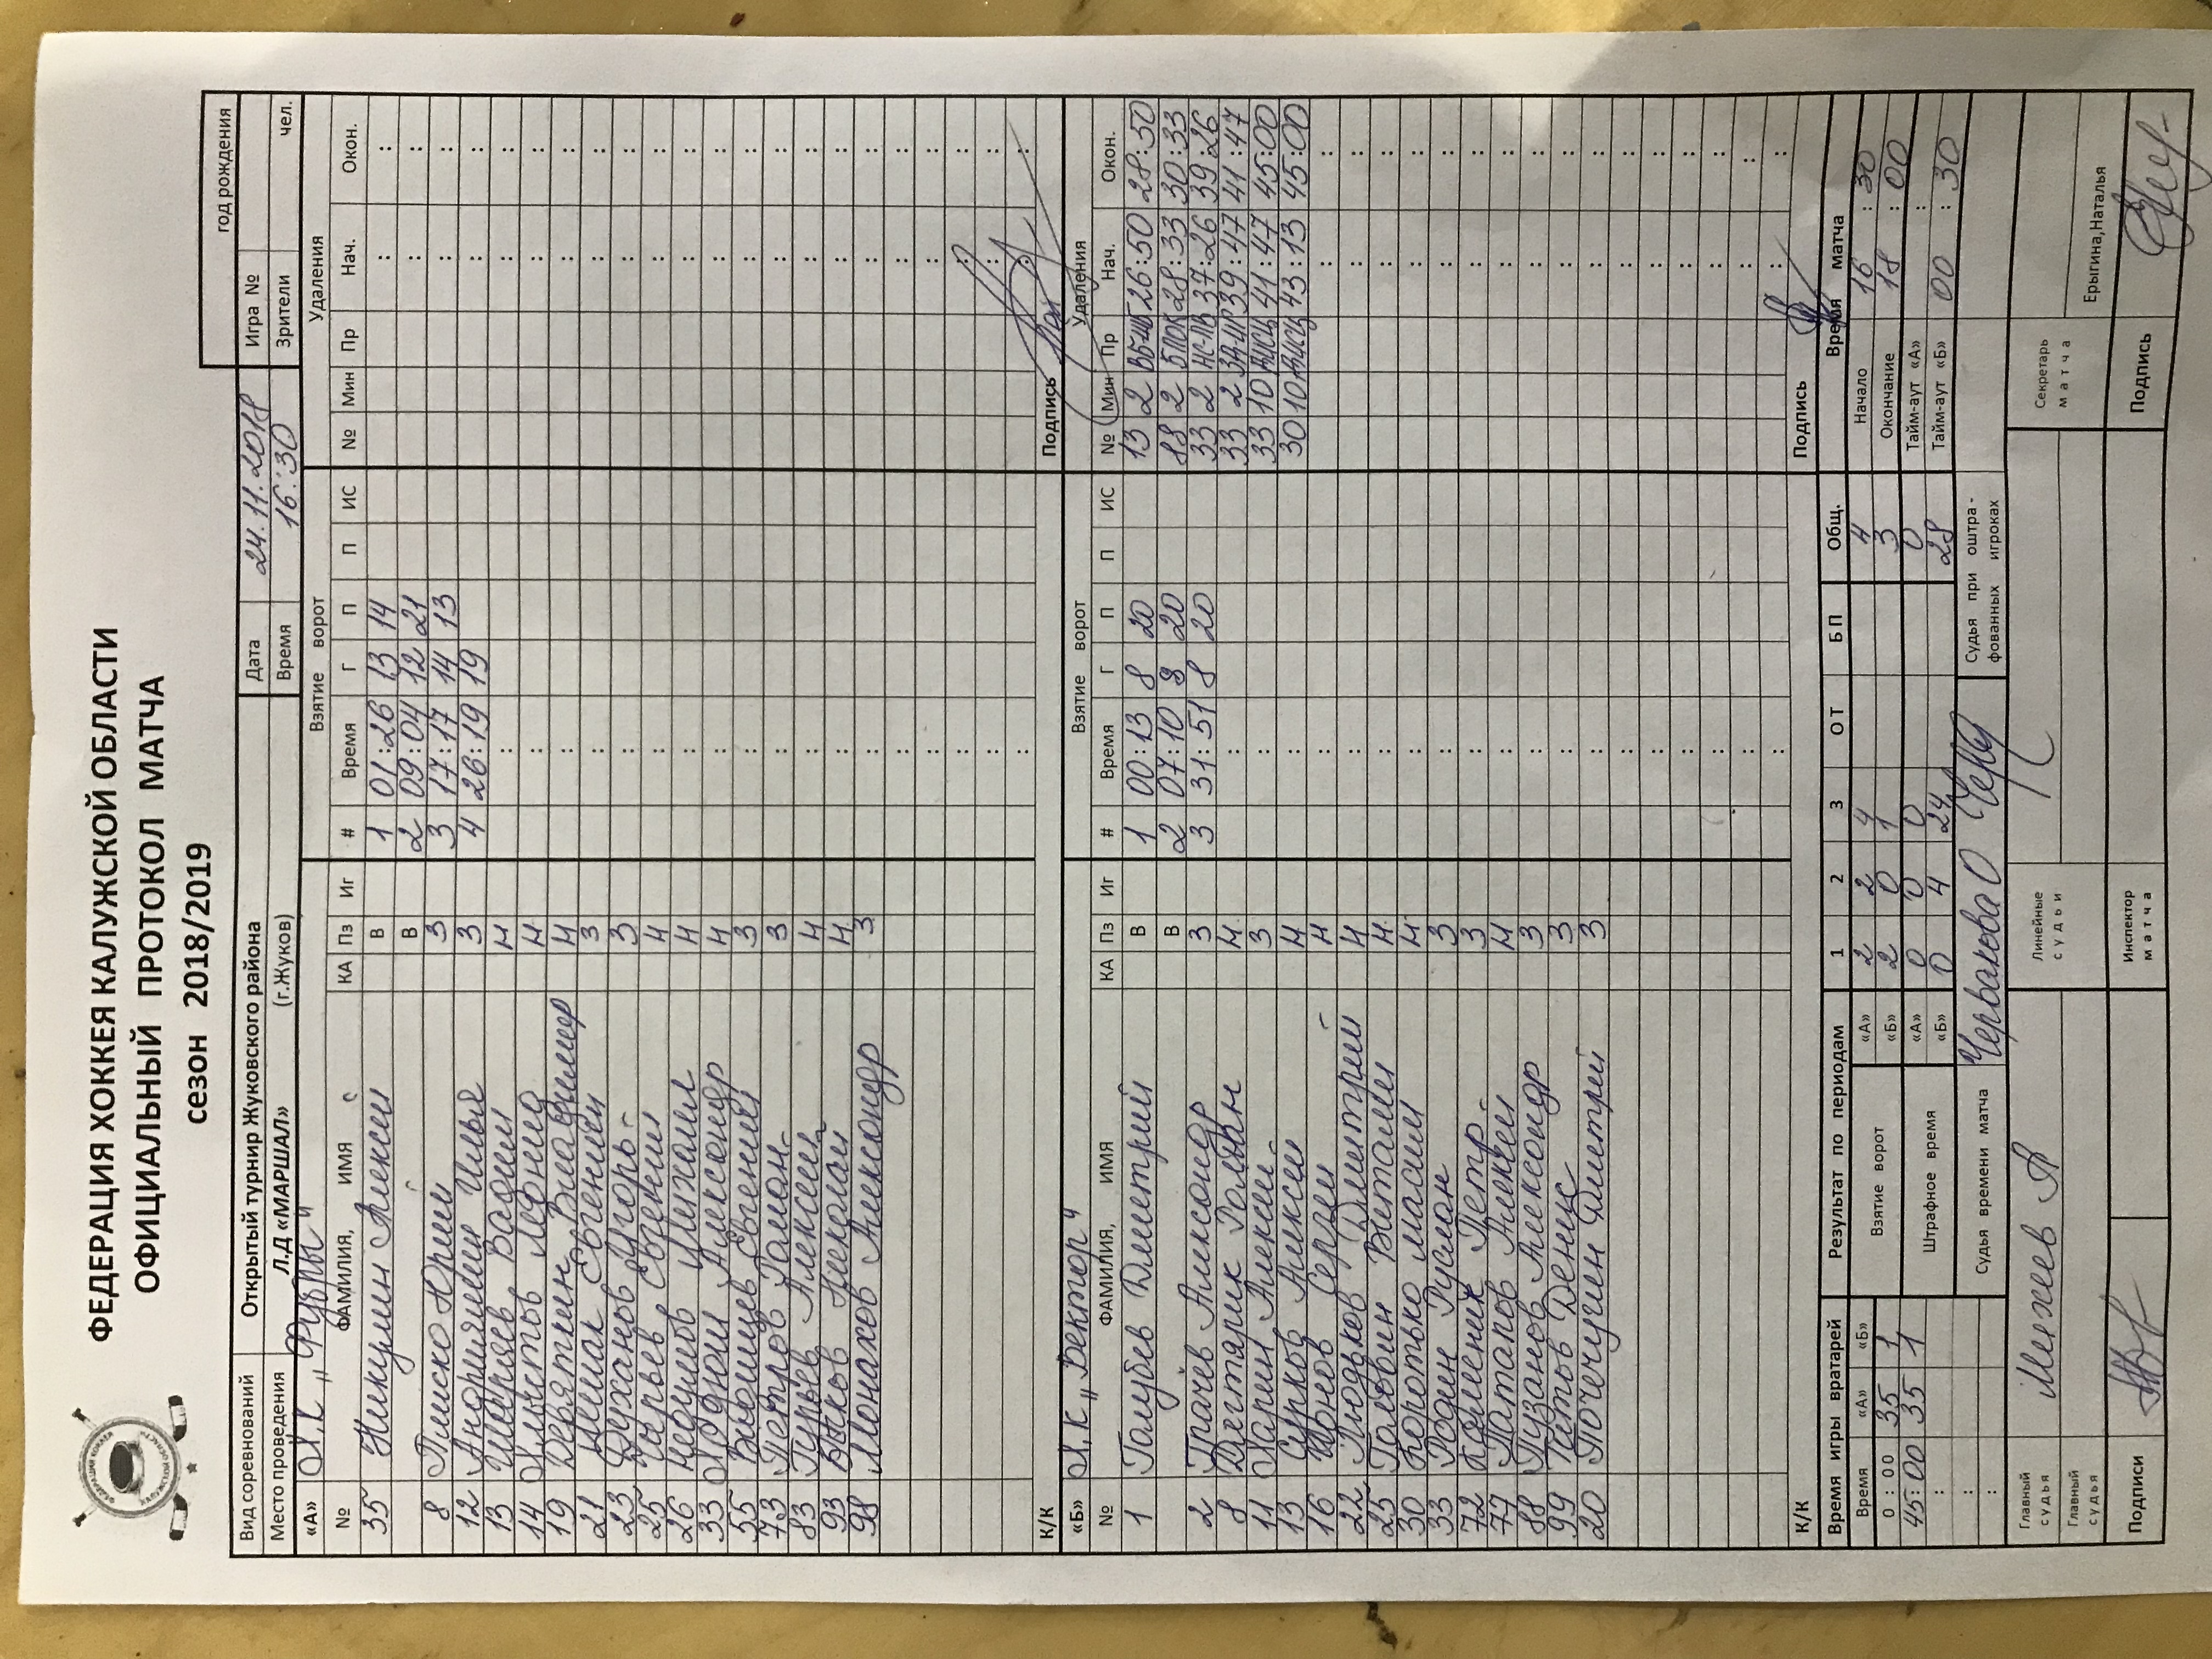 ФЕДЕРАЦИЯ ХОККЕЯ КАЛУЖСКОЙ ОБЛАСТИ
ОФИЦИАЛЬНЫЙ ПРОТОКОЛ МАТЧА
сезон 2018/2019
год рождения
Вид соревнований Открытый турнир Жуковского района Дата 24.11.2018 Игра №
Место проведения Л.Д «МАРШАЛ» (г.Жуков) Время 16:30 Зрители чел.
«А» Х.К „Фурры" Взятие ворот Удаления
№ ФАМИЛИЯ, ИМЯ КА Пз Иг # Время Г П П ИС № Мин Пр Нач. Окон.
35 Никулин Алексей В 1 01:26 13 14 : :
В 2 09:04 12 21 : :
8 Юрий З 3 17:17 14 13 : :
12 Андрияшин Илья З 4 26:19 19 : :
13 Ширяев Вадим Н : : :
14 Хлыстов Леонид Н : : :
19 Девяткин Владимир Н : : :
21 Евгений З : : :
23 Духанов Игорь З : : :
25 Зорьев Евгений Н : : :
26 Михаил Н : : :
33 Александр Н : : :
55 Евгений З : : :
73 Петров Роман З : : :
83 Гурьев Алексей Н : : :
93 Быков Николай Н : : :
98 Монахов Александр З : : :
К/К Подпись
«Б» Х.К „Вектор" Взятие ворот Удаления
№ ФАМИЛИЯ, ИМЯ КА Пз Иг # Время Г П П ИС № Мин Пр Нач. Окон.
1 Голубев Дмитрий В 1 00:13 8 20 13 2 26:50 28:50
В 2 07:10 20 88 2 28:33 30:33
2 Грачёв Александр З 3 31:51 8 20 33 2 37:26 39:26
8 Дегтярик Роман Н : 33 2 39:47 41:47
11 Харин Алексей З : 33 10 41:47 45:00
13 Сурков Алексей Н : 30 10 43:13 45:00
16 Сергей Н : : :
22 Дмитрий Н : : :
25 Головин Виталий Н : : :
30 Коротько Максим Н : : :
33 Родин Руслан З : : :
72 Петр З : : :
77 Потапов Алексей Н : : :
88 Пузанов Александр З : : :
99 Денис З : : :
20 Почечугин Дмитрий З : : :
К/К Подпись
Время игры вратарей Результат по периодам 1 2 3 ОТ БП Общ. Время матча
Время «А» «Б» Взятие ворот «А» 2 2 4 Начало 16:30
0:00 35 1 «Б» 2 0 1 3 Окончание 18:00
45:00 35 1 Штрафное время «А» 0 0 0 0 Тайм-аут «А» :
: «Б» 0 4 24 28 Тайм-аут «Б» 00:30
: Судья времени матча Червакова О Судья при оштра-
: фованных игроках
Главный судья Михеев А Линейные судьи Секретарь матча
Главный судья Ерыгина,Наталья
Подписи Инспектор матча Подпись